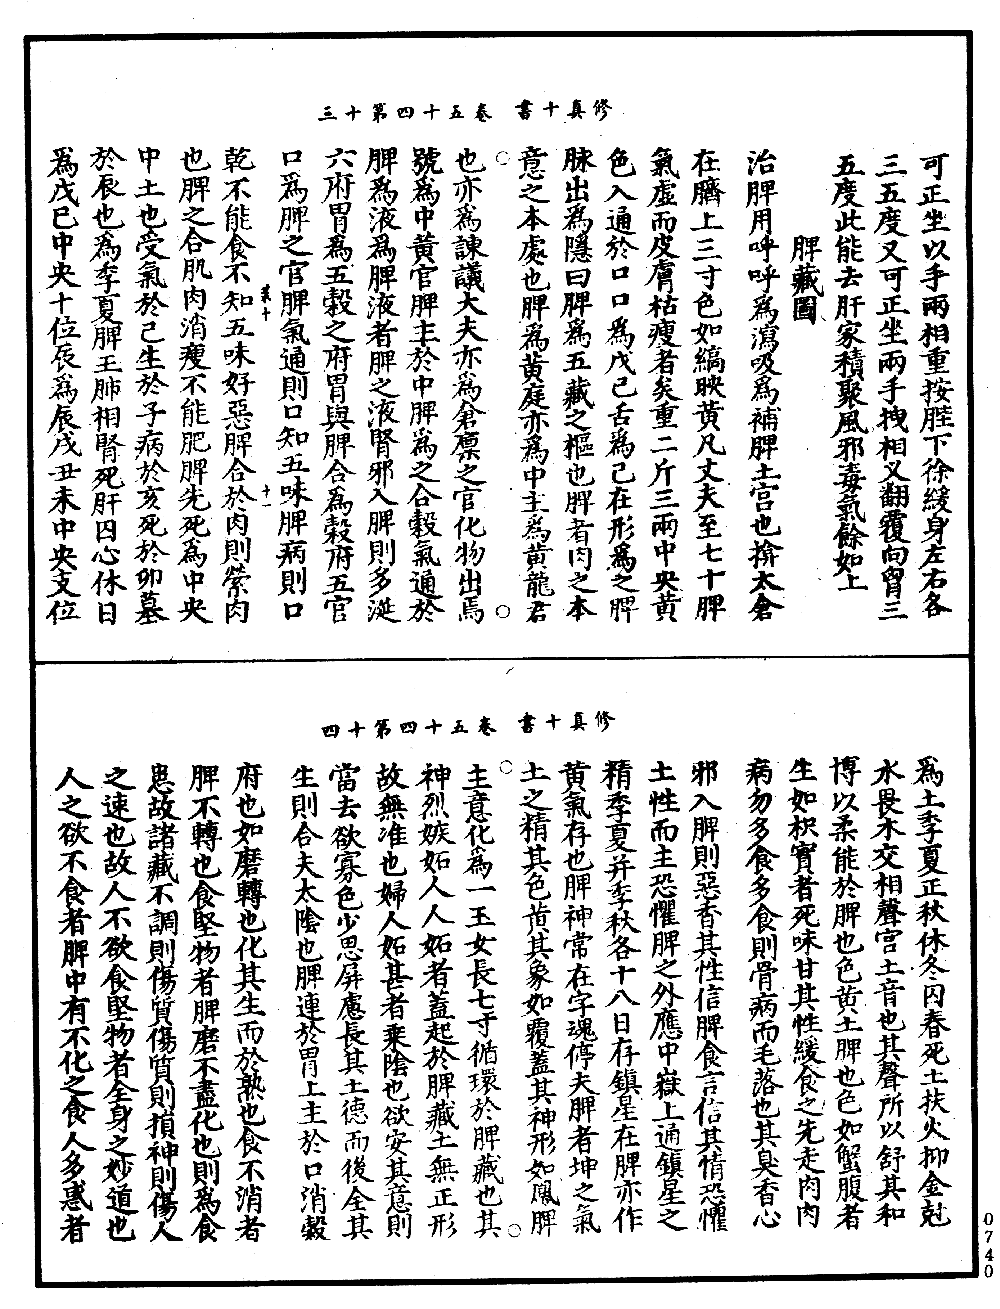 修真十書　卷五十四第十三
可正坐以手兩相重按䏶下徐緩身左右各
三五度又可正坐兩手拽相叉翻覆向胷三
五度此能去肝家積聚風邪毒氣餘如上
脾藏圖
治脾用呼呼爲瀉吸爲補脾土宫也揜太倉
在臍上三寸色如縞映黄凡丈夫至七十脾
氣虛而皮膚枯瘦者矣重二斤三兩中央黄
色入通於口口爲戊己舌爲己在形爲之脾
脉出爲隱曰脾爲五藏之樞也脾者肉之本
意之本處也脾爲黄庭亦爲中主爲黄龍君
也亦爲諫議大夫亦爲倉廪之官化物出焉
號爲中黄官脾主於中脾爲之合穀氣通於
脾爲液爲脾液者脾之液腎邪入脾則多涎
六府胃爲五穀之府胃與脾合爲穀府五官
口爲脾之官脾氣通則口知五味脾病則口
菜十　十一
乾不能食不知五味好惡脾合於肉則榮肉
也脾之合肌肉消瘦不能肥脾先死爲中央
中土也受氣於己生於子病於亥死於卯墓
於辰也爲季夏脾王肺相腎死肝囚心休日
爲戊巳中央十位辰爲辰戌丑未中央支位
修真十書　卷五十四第十四
爲土季夏正秋休冬囚春死土扶火抑金尅
水畏木交相聲宫土音也其聲所以舒其和
博以柔能於脾也色黄土脾也色如蟹腹者
生如枳實者死味甘其性緩食之先走肉肉
病勿多食多食則骨病而毛落也其臭香心
邪入脾則惡香其性信脾食言信其情恐懼
土性而主恐懼脾之外應中嶽上通鎮星之
精季夏并季秋各十八日存鎮星在脾亦作
黄氣存也脾神常在字魂停夫脾者坤之氣
土之精其色黄其象如覆蓋其神形如鳳脾
主意化爲一玉女長七寸循環於脾藏也其
神烈嫉妬人人妬者蓋起於脾藏土無正形
故無准也婦人妬甚者乗陰也欲安其意則
當去欲寡色少思屏慮長其土德而後全其
生則合夫太陰也脾連於胃上主於口消穀
府也如磨轉也化其生而於熟也食不消者
脾不轉也食堅物者脾磨不盡化也則爲食
患故諸藏不調則傷質傷質則損神則傷人
之速也故人不欲食堅物者全身之妙道也
人之欲不食者脾中有不化之食人多惑者
0740